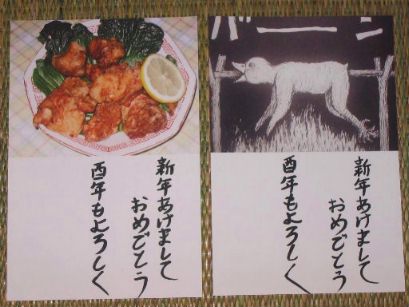 新年あけまして
おめでとう
酉年もよろしく
バーン
新年あけまして
おめでとう
酉年もよろしく